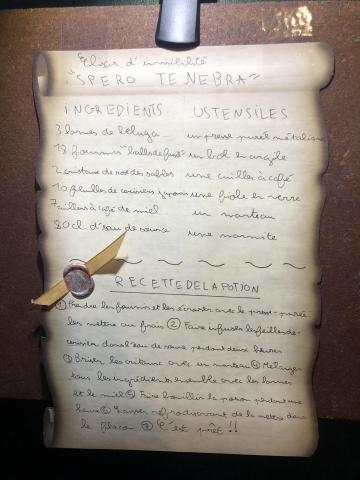 Elixir d'invisibilité
"SPERO TENEBRA"
INGREDIENTS
3 larmes de beluga
18 fourmis "balles de fusil"
2 cristaux de rose des sables
10 feuilles de cerisiers japonais
7 cuillers à café de miel
80 cl d'eau de source
USTENSILES
un presse purée métalique
un bol en argile
une cuiller à café
une fiole en verre
un marteau
une marmite
RECETTE DE LA POTION
① Prendre les fourmis et les écraser avec le presse-purée
les mettre au frais ② Faire infuser les feuilles de
cerisier dans l'eau de source pendant deux heures
③ Briser les cristaux avec un marteau ④ Mélanger
tous les ingrédients ensemble avec les larmes
et le miel ⑤ Faire bouillir la potion pendant une
heure ⑥ Laisser refroidir avant de la mettre dans
le flacon ⑦ C'est prêt !!